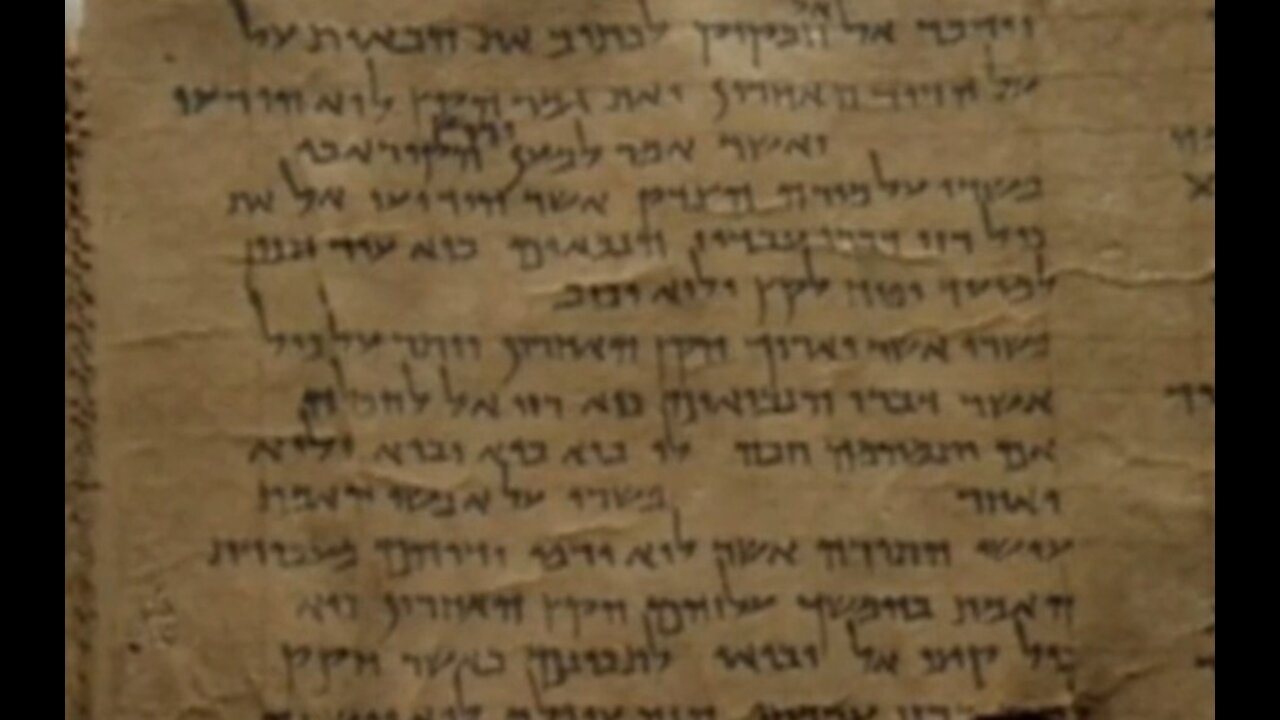 וידבר אל אל חבקוק לכתוב את הבאות על
על הדור האחרון ואת גמר הקץ לוא הודעו
ואשר אמר למען ירוץ הקורא בו
פשרו על מורה הצדק אשר הודיעו אל את
כול רזי דברי עבדיו הנבאים כיא עוד חזון
למועד יפח לקץ ולוא יכזב
פשרו אשר יארוך הקץ האחרון ויתר על כול
אשר דברו הנביאים כיא רזי אל להפלה
אם יתמהמה חכה לו כיא בוא יבוא ולוא
יאחר פשרו על אנשי האמת
עושי התורה אשר לוא ירפו ידיהם מעבודת
האמת בהמשך עליהם הקץ האחרון כיא
כול קיצי אל יבואו לתכונם כאשר חקק